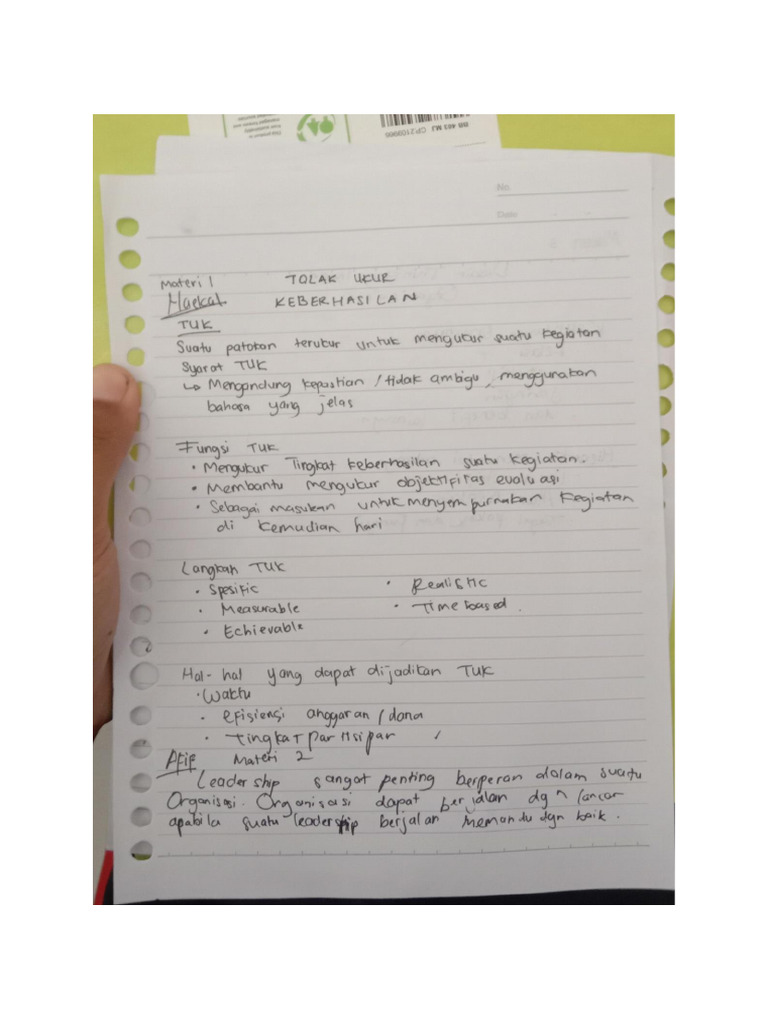 BB 403 MJ CP.2109909
No.
Date
Materi 1 TOLAK UKUR
Haekal KEBERHASILAN
TUK
Suatu patokan terukur untuk mengukur suatu kegiatan
Syarat TUK
↳ Mengandung kepastian / tidak ambigu, menggunakan
bahasa yang jelas
Fungsi TUK
• Mengukur Tingkat keberhasilan suatu kegiatan.
• Membantu mengukur objektifitas evaluasi
• Sebagai masukan untuk menyempurnakan kegiatan
di kemudian hari
Langkah TUK
• Spesific • Realistic
• Measurable • Time based.
• Echievable
Hal-hal yang dapat dijadikan TUK
• Waktu
• efisiensi anggaran / dana
• Tingkat partisipar
Afif Materi 2
Leadership sangat penting berperan dalam suatu
Organisasi. Organisasi dapat berjalan dgn lancar
apabila suatu leadership berjalan memandu dgn baik.